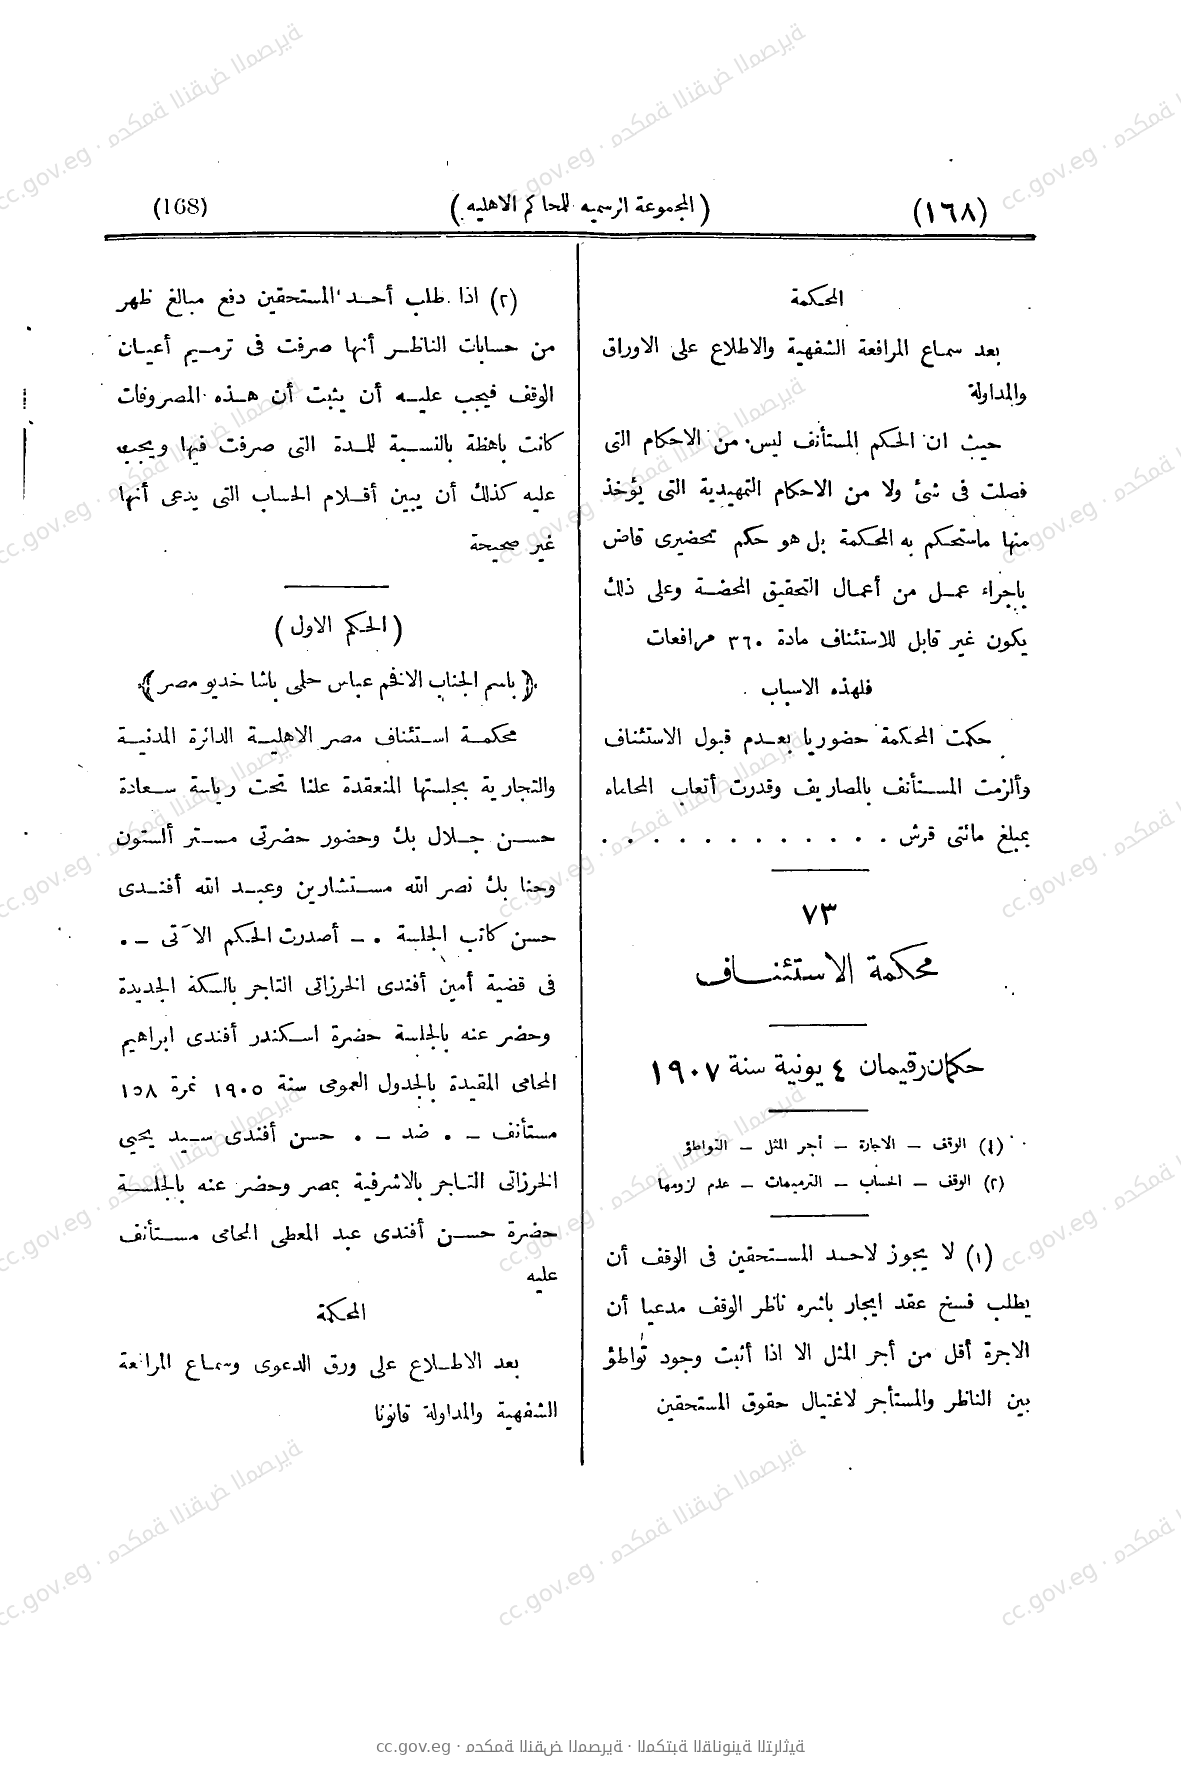 (١٦٨) (المجموعة الرسميه للمحاكم الاهليه) (168)
المحكمة
بعد سماع المرافعة الشفهية والاطلاع على الاوراق
والمداولة
حيث ان الحكم المستأنف ليس من الاحكام التى
فصلت فى شئ ولا من الاحكام التمهيدية التى يؤخذ
منها ماستحكم به المحكمة بل هو حكم تحضيرى قاض
باجراء عمل من أعمال التحقيق المحضة وعلى ذلك
يكون غير قابل للاستئناف مادة ٣٦٠ مرافعات
فلهذه الاسباب
حكمت المحكمة حضوريا بعدم قبول الاستئناف
وألزمت المستأنف بالمصاريف وقدرت أتعاب المحاماه
بمبلغ مائتى قرش . . . . . . . . . . . .
٧٣
محكمة الاستئناف
حكمان رقيمان ٤ يونية سنة ١٩٠٧
(١) الوقف – الاجارة – أجر المثل – التواطؤ
(٢) الوقف – الحساب – الترميمات – عدم لزومها
(١) لا يجوز لاحد المستحقين فى الوقف أن
يطلب فسخ عقد ايجار باشره ناظر الوقف مدعيا أن
الاجرة أقل من أجر المثل الا اذا أثبت وجود تواطؤ
بين الناظر والمستأجر لاغتيال حقوق المستحقين
(٢) اذا طلب أحد المستحقين دفع مبالغ ظهر
من حسابات الناظر أنها صرفت فى ترميم أعيان
الوقف فيجب عليه أن يثبت أن هذه المصروفات
كانت باهظة بالنسبة للمدة التى صرفت فيها ويجب
عليه كذلك أن يبين أقلام الحساب التى يدعى أنها
غير صحيحة
(الحكم الاول)
﴿باسم الجناب الافخم عباس حلمى باشا خديو مصر﴾
محكمة استئناف مصر الاهلية الدائرة المدنية
والتجارية بجلستها المنعقدة علنا تحت رياسة سعادة
حسن جلال بك وحضور حضرتى مستر ألستون
وحنا بك نصر الله مستشارين وعبد الله أفندى
حسن كاتب الجلسة . – أصدرت الحكم الآتى – .
فى قضية أمين أفندى الخرزاتى التاجر بالسكة الجديدة
وحضر عنه بالجلسة حضرة اسكندر أفندى ابراهيم
المحامى المقيدة بالجدول العمومى سنة ١٩٠٥ نمرة ١٥٨
مستأنف – . ضد – . حسن أفندى سيد يحيى
الخرزاتى التاجر بالاشرفية بمصر وحضر عنه بالجلسة
حضرة حسن أفندى عبد المعطى المحامى مستأنف
عليه
المحكمة
بعد الاطلاع على ورق الدعوى وسماع المرافعة
الشفهية والمداولة قانونا
cc.gov.eg · محكمة النقض المصرية · المكتبة القانونية التراثية